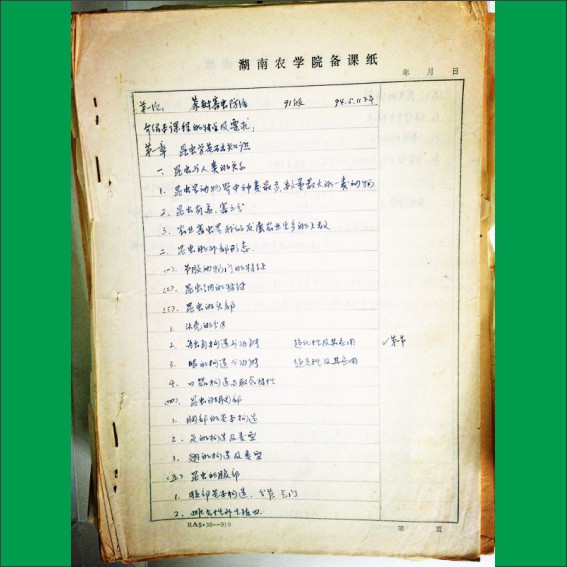 湖南农学院备课纸
年 月 日
第一次: 茶树害虫防治 91级 94.5.11下午
介绍本课程的特点及要求:
第一章 昆虫学基础知识
一、昆虫与人类的关系
1. 昆虫是动物界中种类最多,数量最大的一类动物
2. 昆虫有益、害之分
3. 农业害虫是我国发展农业生产的大敌
二、昆虫的外部形态
(一)、节肢动物门的特征
(二)、昆虫纲的特征
(三)、昆虫的头部
1. 头壳的分区
2. 触角构造与功能 趋化性及其应用 ✓第一节
3. 眼的构造与功能 趋光性及其应用
4. 口器构造与取食特性
(四)、昆虫的胸部
1. 胸部的基本构造
2. 足的构造及类型
3. 翅的构造及类型
(五)、昆虫的腹部
1. 腹部基本构造,分节 气门
2. 雌雄性外生殖器
HAS·36—919
第 页